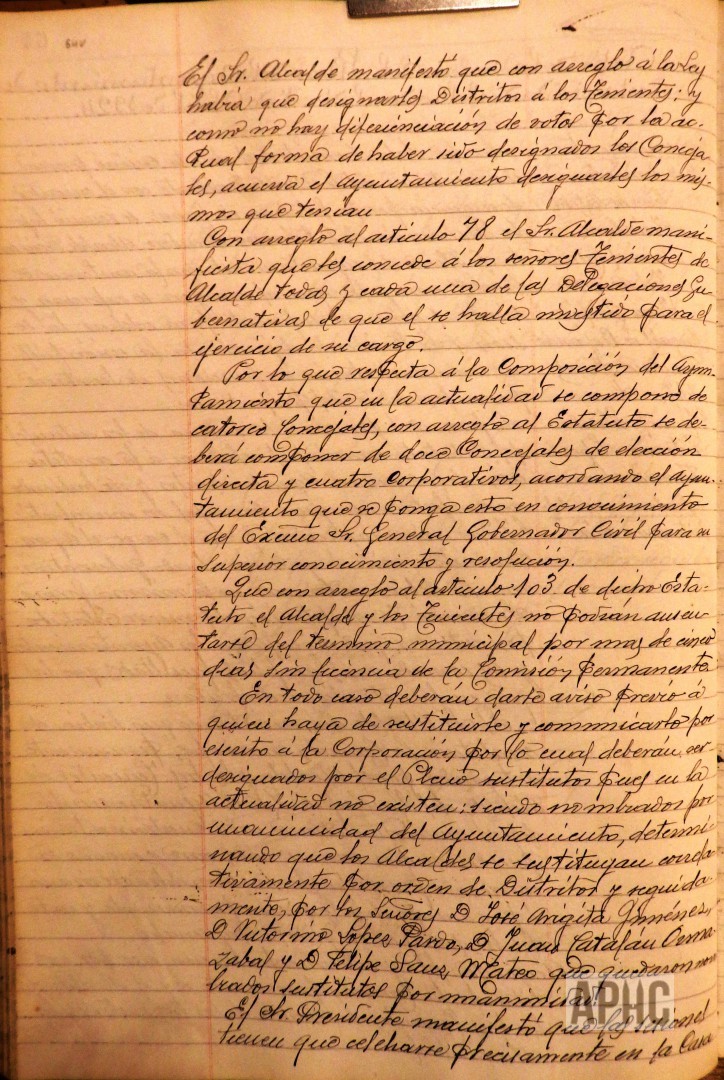 El Sr. Alcalde manifestó que con arreglo á la Ley
habia que designarles Distritos á los Tenientes: y
como no hay diferienciación de votos por la ac-
tual forma de haber sido designados los Conceja-
les, acuerda el Ayuntamiento designarles los mis-
mos que tenian
Con arreglo al articulo 78 el Sr. Alcalde mani-
fiesta que les concede á los señores Tenientes de
Alcalde todas y cada una de las Delegaciones Gu-
bernativas de que el se halla investido para el
ejercicio de su cargo.
Por lo que respecta á la Composición del Ayun-
tamiento que en la actualidad se compone de
catorce Concejales, con arreglo al Estatuto se de-
berá componer de doce Concejales de elección
directa y cuatro corporativos, acordando el Ayun-
tamiento que se ponga esto en conocimiento
del Excmo Sr. General Gobernador Civil para su
superior conocimiento y resolución.
Que con arreglo al articulo 103 de dicho Esta-
tuto el Alcalde y los Tenientes no podrán ausen-
tarse del termino municipal por mas de cinco
dias sin licencia de la Comisión permanente
En todo caso deberán darse aviso previo á
quien haya de sustituirle y comunicarlo por
escrito á la Corporación por lo cual deberán ser
designados por el Pleno sustitutos pues en la
actualidad no existen: siendo nombrados por
unanimidad del Ayuntamiento, determi-
nando que los Alcaldes se sustituyan correla-
tivamente por orden de Distritos y seguida-
mente, por los Señores D José Angita Jiménez,
D Victorino López Pardo, D. Juan Catalán Orma-
zabal y D Felipe Sanz Mateo que quedaron nom
brados sustitutos por unanimidad.
El Sr. Presidente manifestó que las sesiones
tienen que celebrarse precisamente en la Casa
APHC